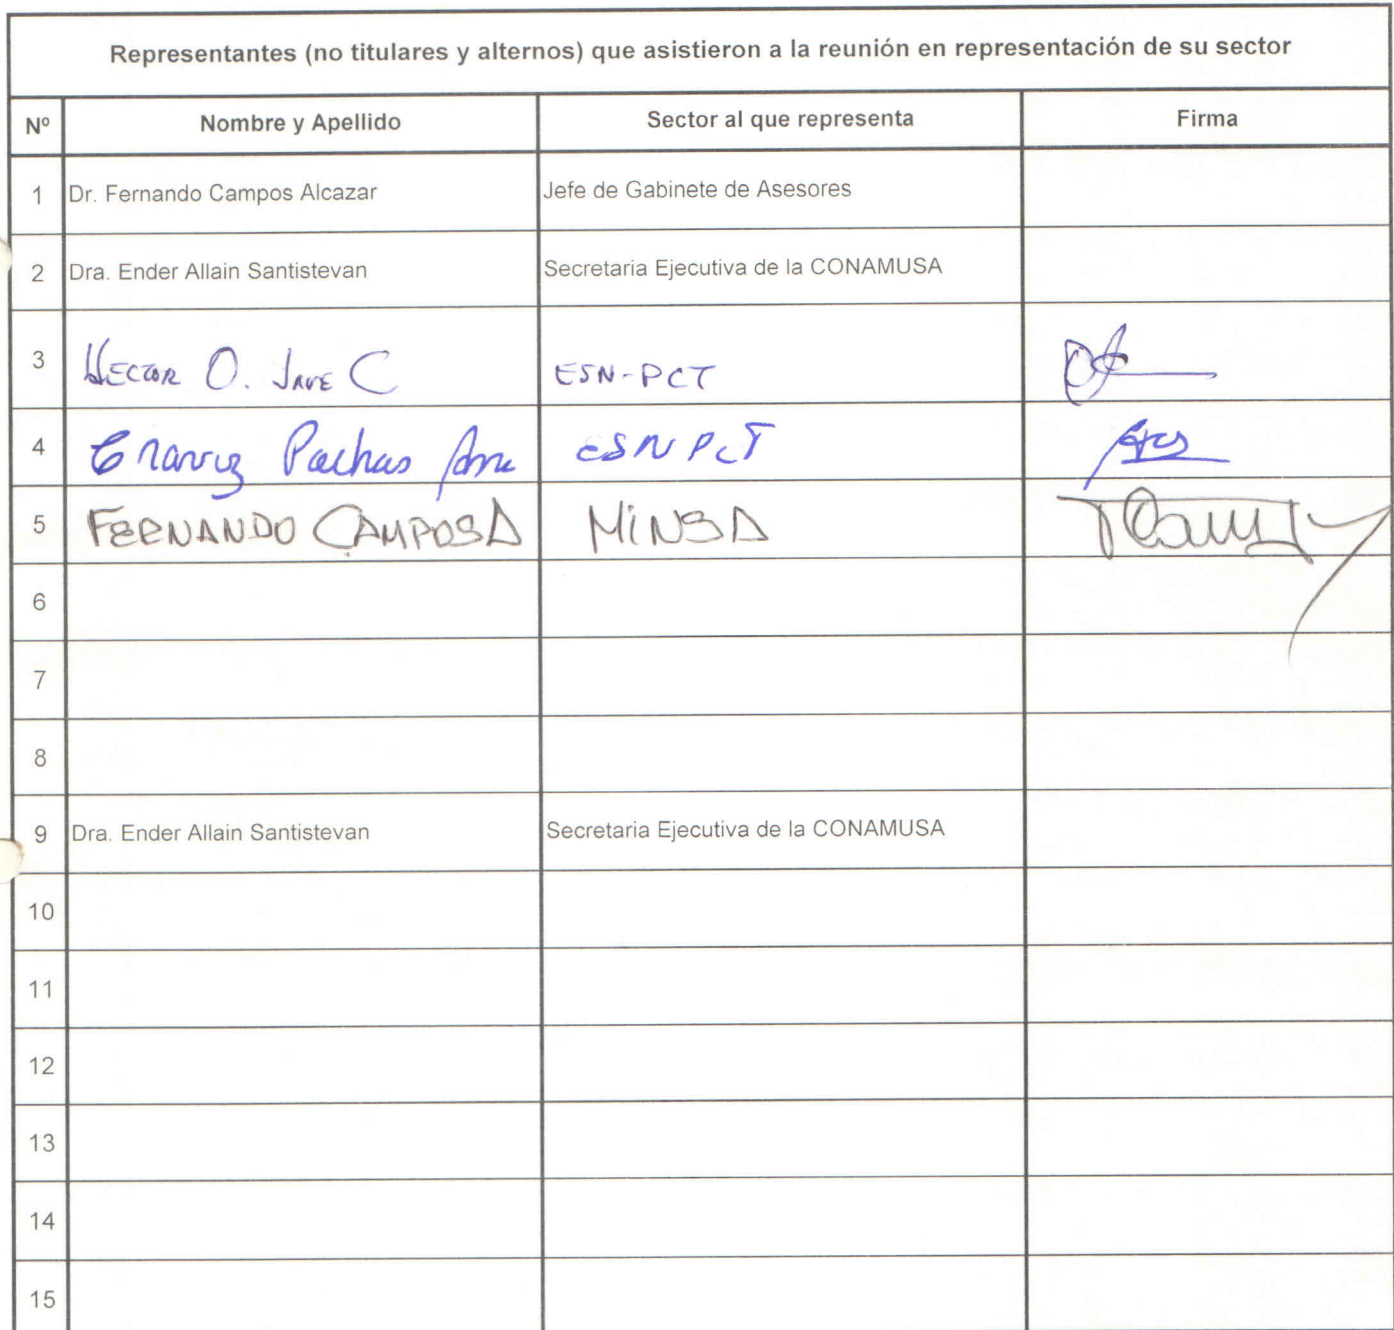 Representantes (no titulares y alternos) que asistieron a la reunión en representación de su sector
Nº Nombre y Apellido Sector al que representa Firma
1 Dr. Fernando Campos Alcazar Jefe de Gabinete de Asesores
2 Dra. Ender Allain Santistevan Secretaria Ejecutiva de la CONAMUSA
3 HECTOR O. JAVE C ESN-PCT
4 Pachas ESN PCT
5 FERNANDO CAMPOS A MINSA
6
7
8
9 Dra. Ender Allain Santistevan Secretaria Ejecutiva de la CONAMUSA
10
11
12
13
14
15